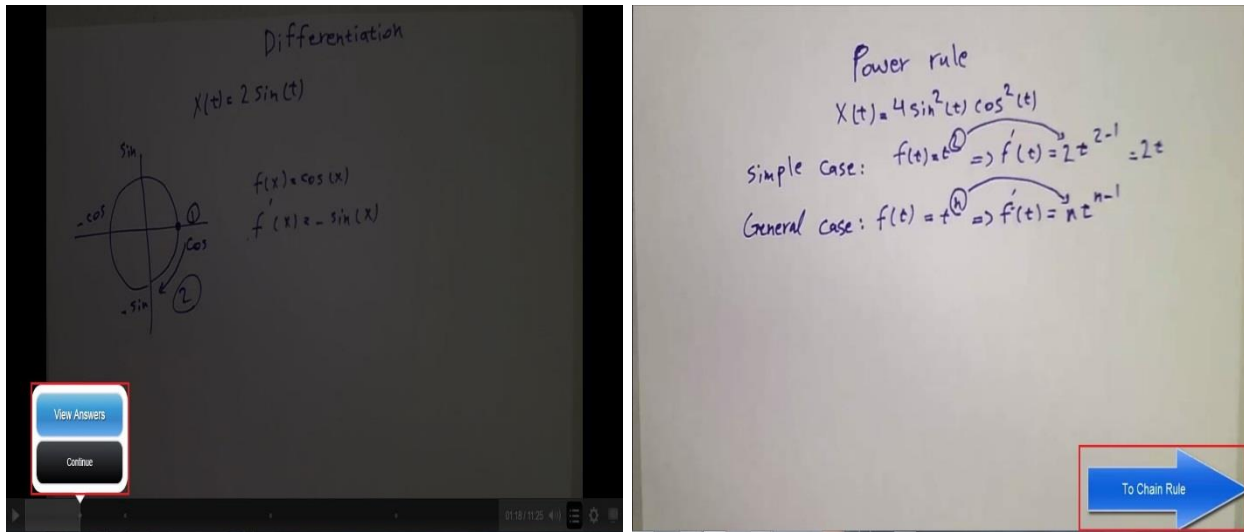 Differentiation
X(t) = 2 sin(t)
sin
- cos
1
cos
- sin
2
f(x) = cos(x)
f'(x) = - sin(x)
View Answers
Continue
01:18 / 11:25
Power rule
X(t) = 4 sin²(t) cos²(t)
Simple case: f(t) = t² => f'(t) = 2t²⁻¹ = 2t
General case: f(t) = tⁿ => f'(t) = n tⁿ⁻¹
To Chain Rule